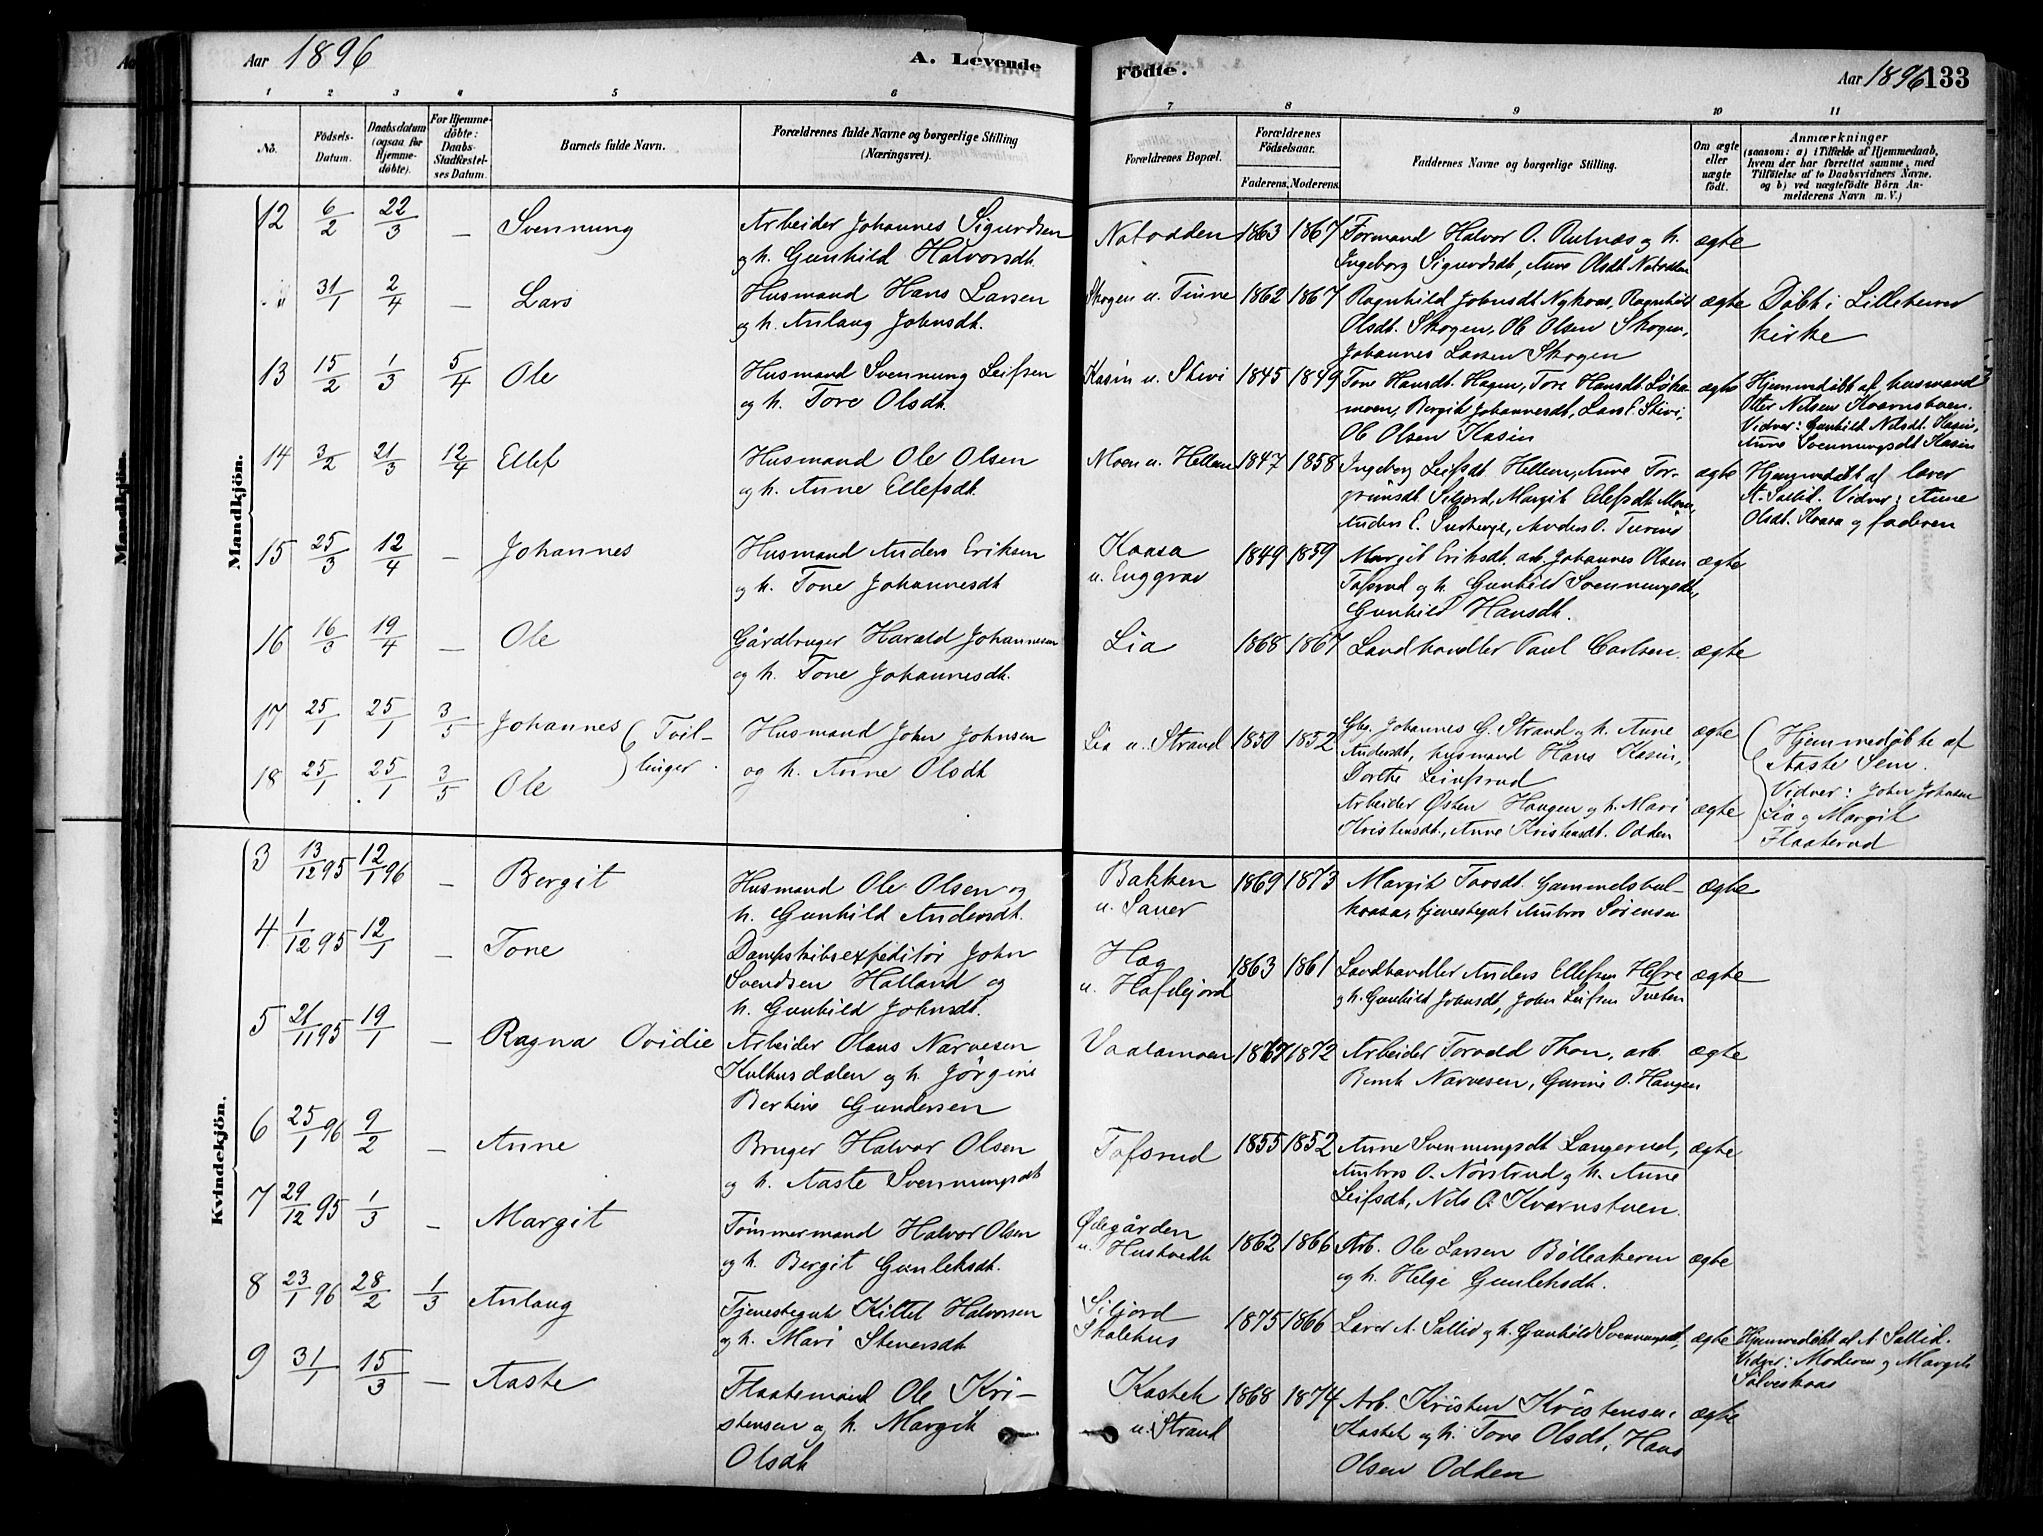 Aar 1896
A. Levende
Födte.
Aar 1896 133
1 2 3 4 5 6 7 8 9 10 11
No.
Födsels-
Datum.
Daabsdatum
(ogsaa for
Hjemme-
döbte).
For Hjemme-
döbte:
Daabs-
Stadfæstel-
ses Datum.
Barnets fulde Navn.
Forældrenes fulde Navne og borgerlige Stilling
(Næringsvei).
Forældrenes Bopæl.
Forældrenes
Födselsaar.
Faderens. Moderens.
Faddernes Navne og borgerlige Stilling.
Om ægte
eller
uægte
födt.
Anmærkninger
(saasom: a) i Tilfælde af Hjemmedaab,
hvem der har forrettet samme, med
Tilföielse af to Daabsvidners Navne.
og b) ved uægtefödte Börn An-
melderens Navn m. V.)
Mandkjön.
12 6/2 22/3 — Svennung
Arbeider Johannes Sigurdsen
og h. Gunhild Halvorsdt.
Notodden 1863 1867
Formand Halvor O. Rulnæs og h.
Ingeborg Sigurdsdt, Anne Olsdt Notodden
ægte
" 31/1 2/4 — Lars
Husmand Hans Larsen
og h. Anlaug Johnsdt.
Skogen u. Tinne 1862 1867
Ragnhild Johnsdt Nykaas, Ragnhild
Olsdt. Skogen, Ole Olsen Skogen,
Johannes Larsen Skogen
ægte
Döbt i Lilleherred
kirke
13 15/2 1/3 5/4 Ole
Husmand Svennung Leifsen
og h. Tore Olsdt.
Kasin u. Skivi 1845 1849
Tone Hansdt. Hagen, Tore Hansdt.
moen, Bergit Johannesdt, Lars E. Skivi,
Ole Olsen Kasin
ægte
Hjemmedöbt af husmand
Otter Nilsen Kværnstuen.
Vidner: Gunhild Nilsdt. Kasin,
Anne Svennungsdt Kasin
14 3/2 21/3 12/4 Ellef
Husmand Ole Olsen
og h. Anne Ellefsdt.
Moen u. Hellem 1847 1858
Ingeborg Leifsdt Hellem, Anne Tor-
grimsdt Siljord, Margit Ellefsdt Moen,
Anders E. , Anders O.
ægte
Hjemmedöbt af lærer
A. Sallid. Vidner: Anne
Olsdt. Kaasa og faderen
15 25/3 12/4 — Johannes
Husmand Anders Eriksen
og h. Tone Johannesdt
Kaasa
u. Enggrav
1849 1859
Margit Eriksdt. arb. Johannes Olsen
Tofsrud og h. Gunhild Svennungsdt,
Gunhild Hansdt.
ægte
16 16/3 19/4 — Ole
Gårdbruger Harald Johannesen
og h. Tone Johannesdt.
Lia 1868 1867
Landhandler Paul Carlsen.
ægte
17 25/1 25/1 3/5 Johannes
18 25/1 25/1 3/5 Ole
Tvil-
linger.
Husmand John Johnsen
og h. Anne Olsdt
Lia u. Strand 1850 1852
Gbr. Johannes G. Strand og h. Anne
Andersdt, husmand Hans Kasin,
Dorthe Leinsrud
Arbeider Østen Haugen og h. Mari
Kristensdt., Anne Kristensdt. Odden
ægte
ægte
Hjemmedöbte af
Aaste Sem.
Vidner: John Johnsen
Lia og Margit
Flaaterud
Kvindekjön.
3 13/12 95 12/1 96 — Bergit
Husmand Ole Olsen og
h. Gunhild Andersdt.
Bakken
u. Sauer
1869 1873
Margit Torsdt. Gammelsbøl-
kaasa, tjenestegut Ambros Sörensen
ægte
4 1/12 95 12/1 — Tone
Dampskibsexpeditör John
Svendsen Halland og
h. Gunhild Johnsdt.
Hag
u. Hafslejord
1863 1861
Landhandler Anders Ellefsen Hefre
og h. Gunhild Johnsdt, John Leifsen Tveten
ægte
5 21/11 95 19/1 — Ragna Ovidie
Arbeider Olaus Narvesen
Kulhusdalen og h. Jörgine
Bertine Gundersen
Vaalamoen 1867 1872
Arbeider Torvald Thon, arb.
Bernt Narvesen, Gurine O. Haugen
ægte
6 25/1 96 9/2 — Anne
Bruger Halvor Olsen
og h. Aaste Svennungsdt
Tofsrud 1855 1852
Anne Svennungsdt Langerud,
Ambros O. Nörstrud og h. Anne
Leifsdt, Nils O. Kværnstuen.
ægte
7 29/12 95 1/3 — Margit
Tömmermand Halvor Olsen
og h. Bergit Gunleksdt.
Ødegården
u. Hustvedt
1862 1866
Arb. Ole Larsen Bölleakeren
og h. Helge Gunleksdt.
ægte
8 23/1 96 28/2 1/3 Anlaug
Tjenestegut Kittel Halvorsen
og h. Mari Stenersdt
Siljord
Skolehus
1875 1866
Lærer A. Sallid og h. Gunhild Svennungsdt,
ægte
Hjemmedöbt af A Sallid.
Vidner: Moderen og Margit
Sölveskaas
9 31/1 15/3 — Aaste
Flaatemand Ole Kri-
stensen og h. Margit
Olsdt
Kastet
u. Strand
1868 1874
Arb. Kristen Kristensen
Kastet og h. Tone Olsdt, Hans
Olsen Odden
ægte